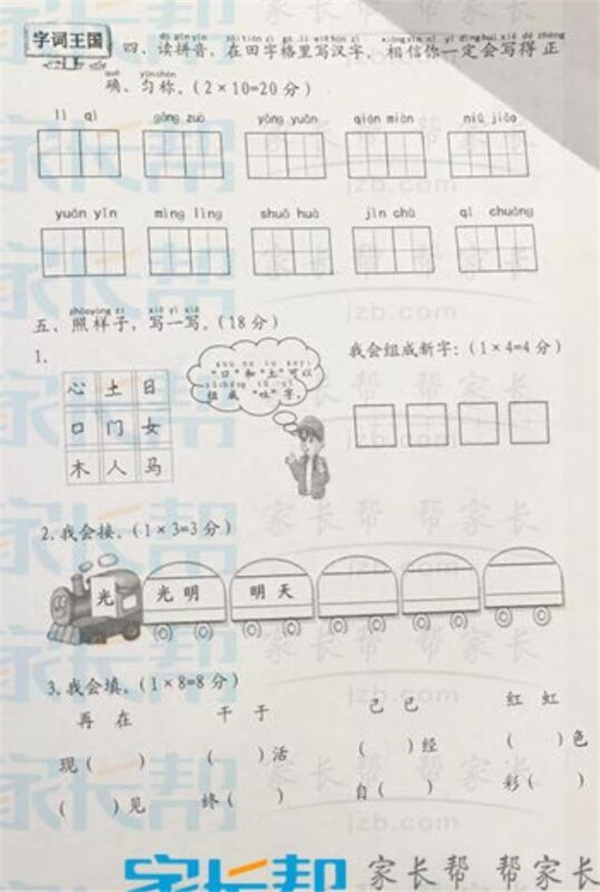 字词王国
四、读拼音，在田字格里写汉字，相信你一定会写得正
què yúnchèn
确、匀称。(2×10=20分)
lì qì gōng zuò yǒng yuǎn qián miàn niú jiǎo
yuán yīn mìng lìng shuō huà jìn chū qǐ chuáng
zhàoyàng zi xiě yì xiě
五、照样子，写一写。(18分)
1.
“口”和“土”可以
组成“吐”字。
我会组成新字：(1×4=4分)
心 土 日
口 门 女
木 人 马
2.我会接。(1×3=3分)
光 光明 明天
3.我会填。(1×8=8分)
再 在 干 于 己 已 红 虹
现( ) ( )活 ( )经 ( )色
( )见 终( ) 自( ) 彩( )
家长帮 帮家长
jzb.com
家长帮 家长帮 帮家长